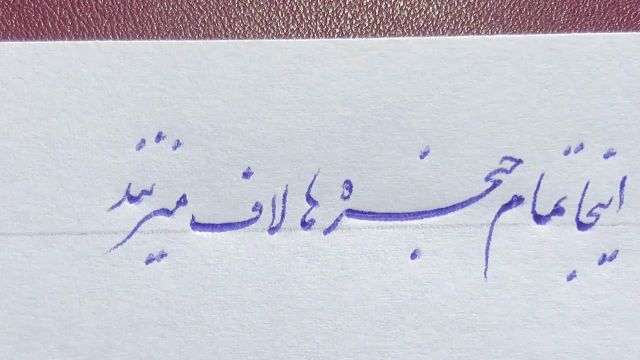 اینجا تمام حنجره ها لاف میزنند